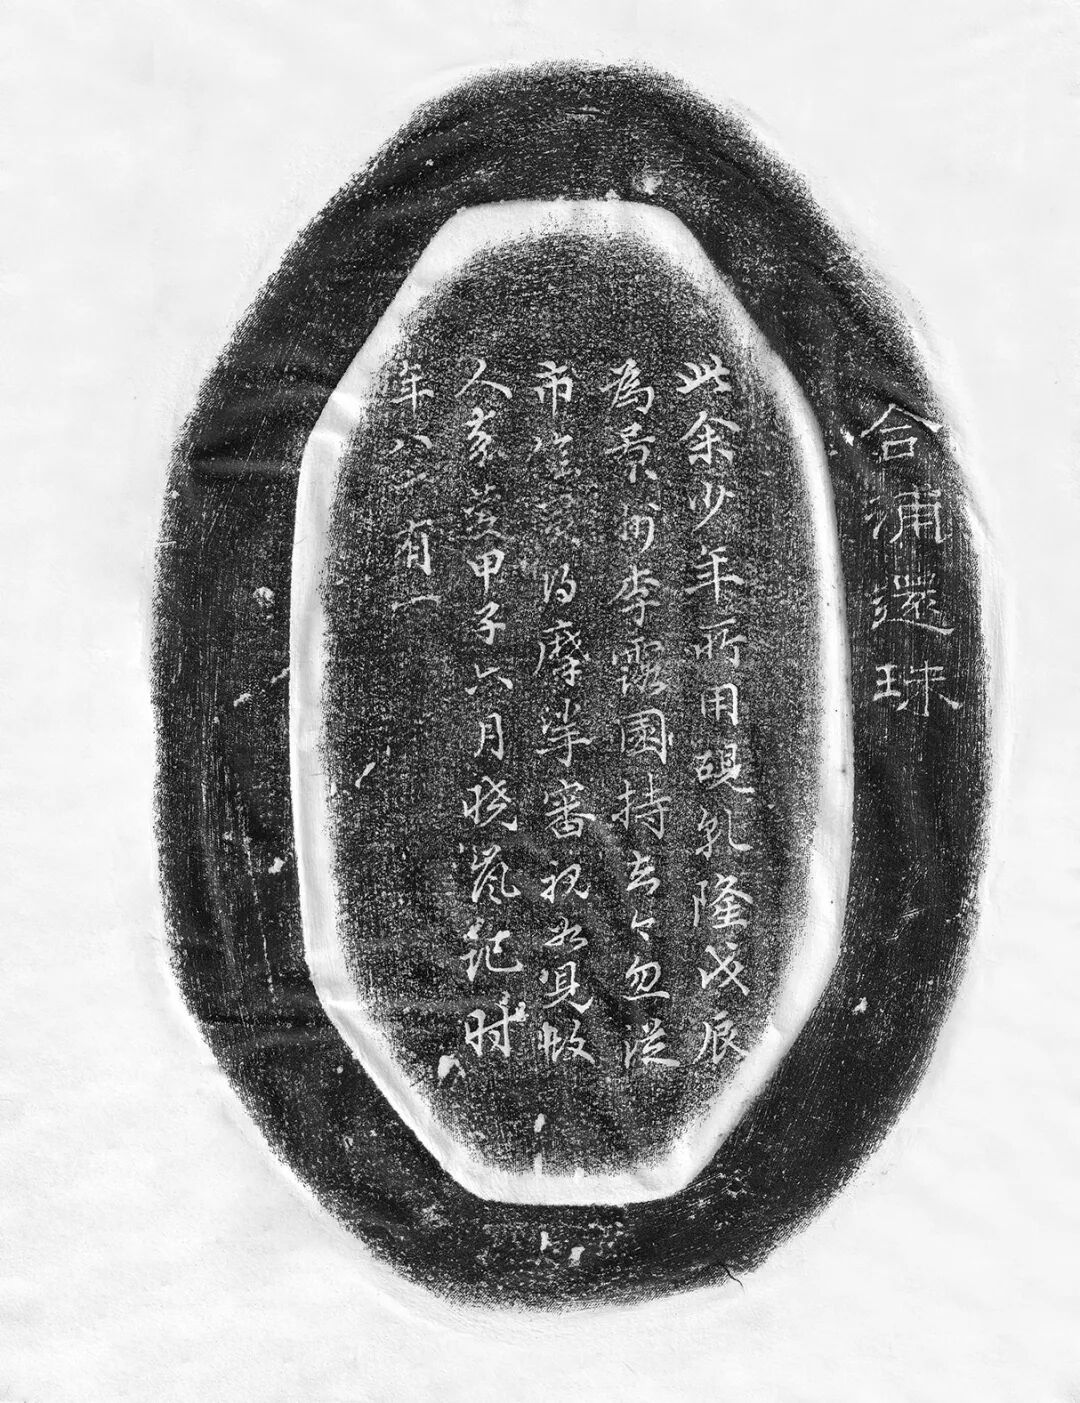 合浦還珠
此余少年所用硯乾隆戊辰
為景州李露園持去今忽從
市得摩挲審視如見故
人嘉慶甲子六月晓嵐記时
年八十有一